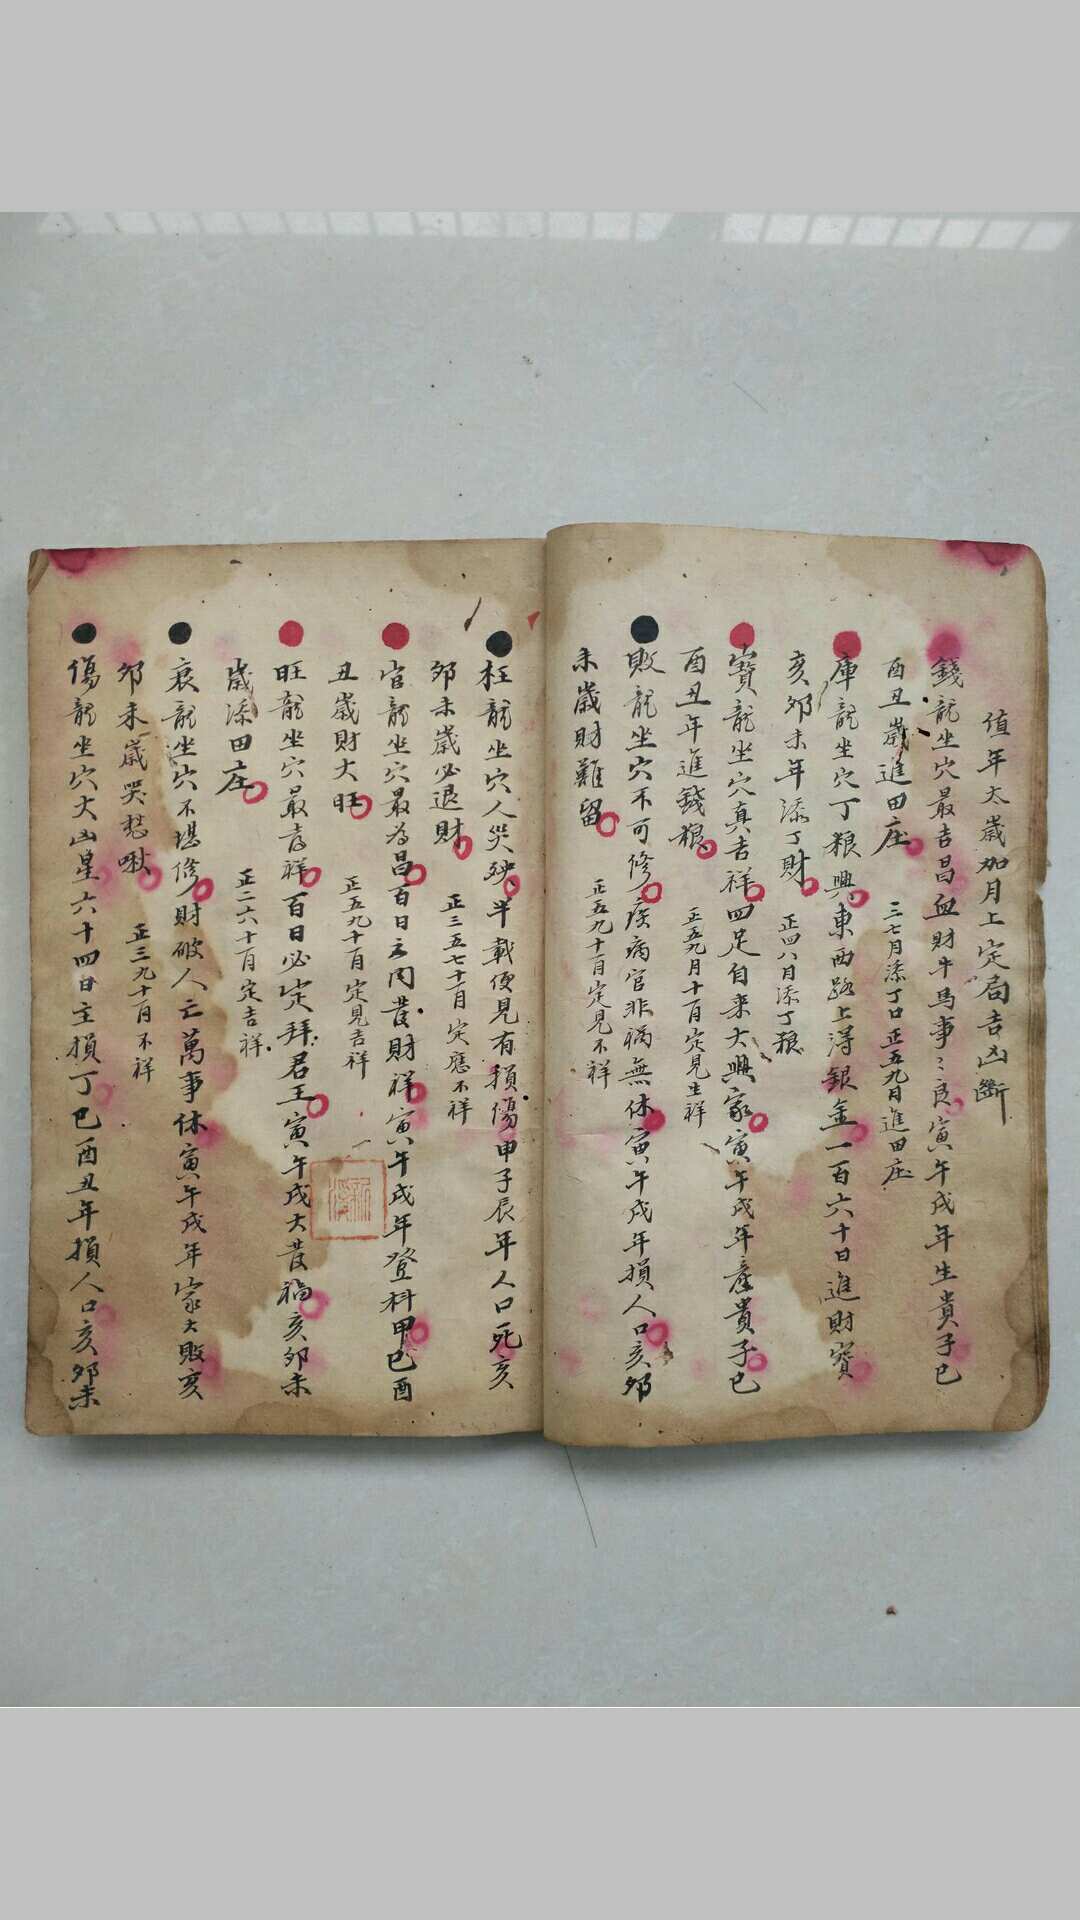 值年太歲加月上定局吉凶斷
錢龍坐穴最吉昌血財牛馬事〻良寅午戌年生貴子巳
酉丑歲進田庄 三七月添丁口正五九月進田庄
庫龍坐穴丁粮興東西路上淂銀金一百六十日進財寳
亥卯未年添丁財 正四八月添丁粮
寳龍坐穴真吉祥四足自来大興家寅午戌年產貴子巳
酉丑年進錢粮 正五九月十一月定見生祥
敗龍坐穴不可修疾病官非禍無休寅午戌年損人口亥卯
未歲財難留 正五九十一月定見不祥
枉龍坐穴人哭殃半載便見有損傷申子辰年人口死亥
卯未歲必退財 正三五七十一月定應不祥
官龍坐穴最為昌百日之内發財祥寅午戌年登科甲巳酉
丑歲財大旺 正五九十一月定見吉祥
旺龍坐穴最吉祥百日必定拜君王寅午戌大發福亥卯未
歲添田庄 正二六十一月定吉祥
衰龍坐穴不堪修財破人亡萬事休寅午戌年家大敗亥
卯未歲哭愁啾 正三九十一月不祥
傷龍坐穴大凶星六十四日主損丁巳酉丑年損人口亥卯未